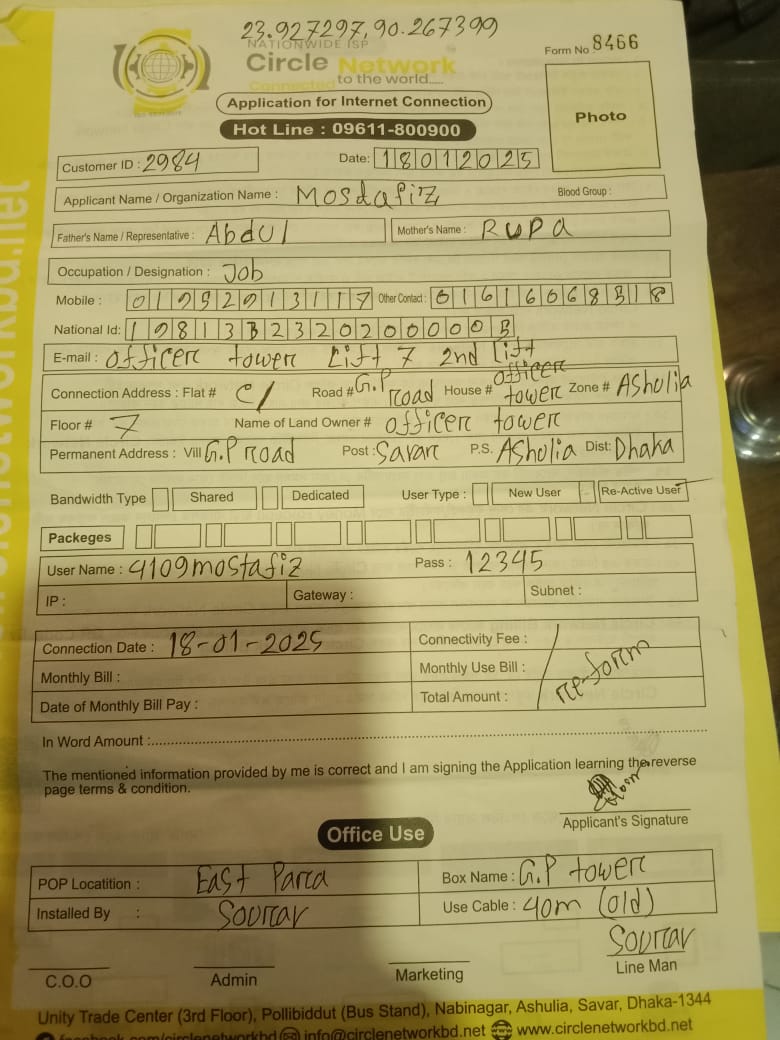 23.927297,90.267399
NATIONWIDE ISP
Circle Network
Connected to the world....
Form No. 8466
Application for Internet Connection
Photo
Hot Line : 09611-800900
Customer ID : 2984 Date: 18012025
Applicant Name / Organization Name : Mosdafiz Blood Group :
Father's Name / Representative : Abdul Mother's Name : Rupa
Occupation / Designation : Job
Mobile : Other Contact :
National Id:
E-mail : officer tower Lift 7 2nd Lift
Connection Address : Flat # C/ Road # G.P road House # officer tower Zone # Asholia
Floor # 7 Name of Land Owner # officer tower
Permanent Address : Vill G.P road Post : Savar P.S. Asholia Dist: Dhaka
Bandwidth Type Shared Dedicated User Type : New User Re-Active User
Packeges
User Name : 4109mostafiz Pass : 12345
IP : Gateway : Subnet :
Connection Date : 18-01-2025 Connectivity Fee :
Monthly Bill : Monthly Use Bill : re-form
Date of Monthly Bill Pay : Total Amount :
In Word Amount :
The mentioned information provided by me is correct and I am signing the Application learning the reverse
page terms & condition.
Applicant's Signature
Office Use
POP Locatition : East Para Box Name : G.P tower
Installed By : Sourav Use Cable : 40m (old)
Sourav
C.O.O Admin Marketing Line Man
Unity Trade Center (3rd Floor), Pollibiddut (Bus Stand), Nabinagar, Ashulia, Savar, Dhaka-1344
facebook.com/circlenetworkbd info@circlenetworkbd.net www.circlenetworkbd.net